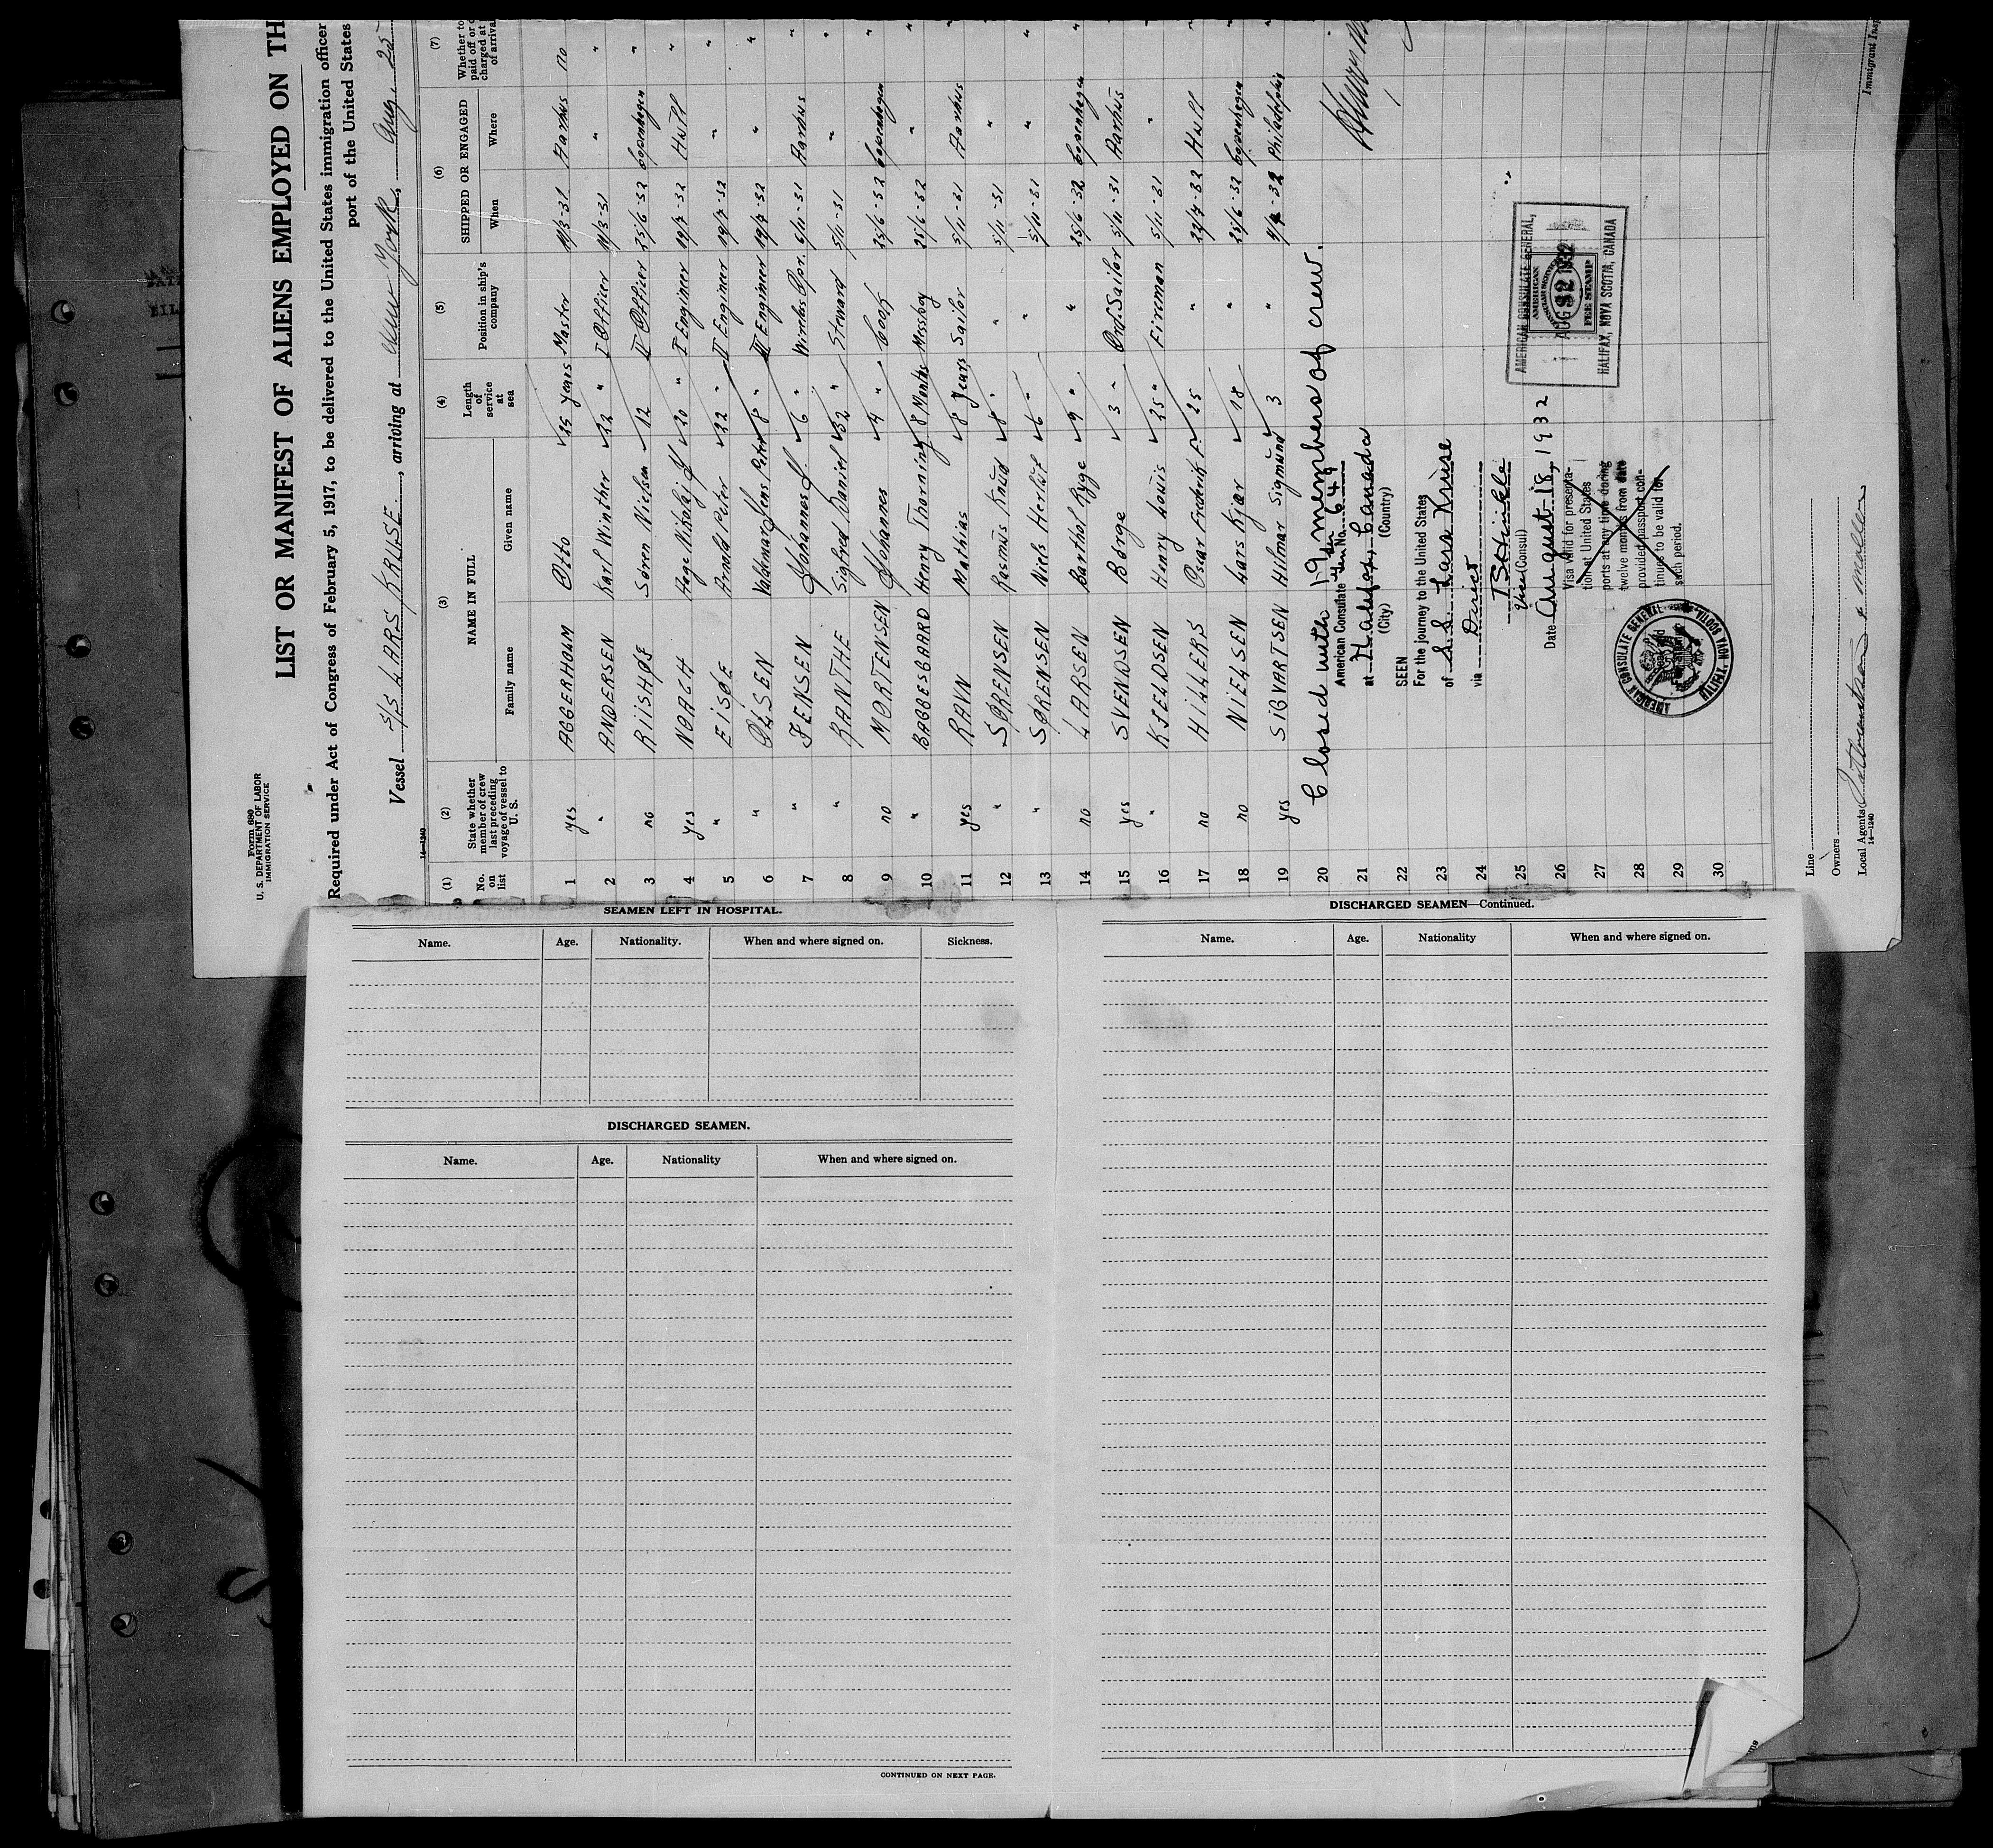 Form 680
U. S. DEPARTMENT OF LABOR
IMMIGRATION SERVICE
LIST OR MANIFEST OF ALIENS EMPLOYED ON TH
Required under Act of Congress of February 5, 1917, to be delivered to the United States immigration officer
port of the United States
Vessel S/S LARS KRUSE, arriving at New York, Aug. 25
14—1240
(1) (2) (3) (4) (5) (6) (7)
No. on list
State whether member of crew last preceding voyage of vessel to U. S.
NAME IN FULL
Family name Given name
Length of service at sea
Position in ship's company
SHIPPED OR ENGAGED
When Where
Whether to paid off or charged at of arrival
1 yes AGGERHOLM Otto 25 years Master 11/3-31 Aarhus no
2 " ANDERSEN Karl Winther 22 " I Officer 11/3-31 " "
3 no RIISHØJ Søren Nielsen 12 II Officer 25/6-32 Copenhagen "
4 yes NORCH Aage Nikolaj 20 " I Engineer 19/7-32 Hull "
5 " EISØE Arnold Peter 22 " II Engineer 19/7-32 " "
6 " OLSEN Valdemar Jens Peter 8 " III Engineer 19/7-32 " "
7 " JENSEN Johannes J. 6 " Wireless Opr. 6/11-31 Aarhus "
8 " RANTHE Sigfred Daniel 32 " Steward 5/11-31 " "
9 no MORTENSEN Johannes 4 " Cook 25/6-32 Copenhagen "
10 " BAGGESGAARD Henry Thorning 8 Months Messboy 25/6-32 " "
11 yes RAVN Mathias 8 Years Sailor 5/11-31 Aarhus "
12 " SØRENSEN Rasmus Knud 8 " " 5/11-31 " "
13 " SØRENSEN Niels Herluf 6 " " 5/11-31 " "
14 no LARSEN Barthol Ryge 9 " " 25/6-32 Copenhagen "
15 yes SVENDSEN Børge 3 " Ord. Sailor 5/11-31 Aarhus "
16 " KJELDSEN Henry Louis 25 " Fireman 5/11-31 " "
17 no HILLERS Oscar Frederik F. 25 " 22/7-32 Hull "
18 no NIELSEN Lars Kjær 18 " 25/6-32 Copenhagen "
19 yes SIGVARTSEN Hilmar Sigmund 3 " Philadelphia "
20 Closed with 19 members of crew.
21
22
23
24
25
26
27
28
29
30
American Consulate Gen No. 649
at Halifax, Canada
(City) (Country)
SEEN
For the journey to the United States
of S.S. Lars Kruse
via Direct
Vice (Consul)
Date August 18, 1932
Visa valid for presenta-
tion at United States
ports at any time during
twelve months from date
provided passport con-
tinues to be valid for
such period.
AMERICAN CONSULATE GENERAL
HALIFAX, NOVA SCOTIA.
AMERICAN CONSULATE GENERAL,
AMERICAN
AUG 1932
FEE STAMP
HALIFAX, NOVA SCOTIA, CANADA
Line
Owners
Local Agents
14—1240
Immigrant Insp
SEAMEN LEFT IN HOSPITAL.
Name. Age. Nationality. When and where signed on. Sickness.
DISCHARGED SEAMEN.
Name. Age. Nationality When and where signed on.
CONTINUED ON NEXT PAGE.
DISCHARGED SEAMEN—Continued.
Name. Age. Nationality When and where signed on.